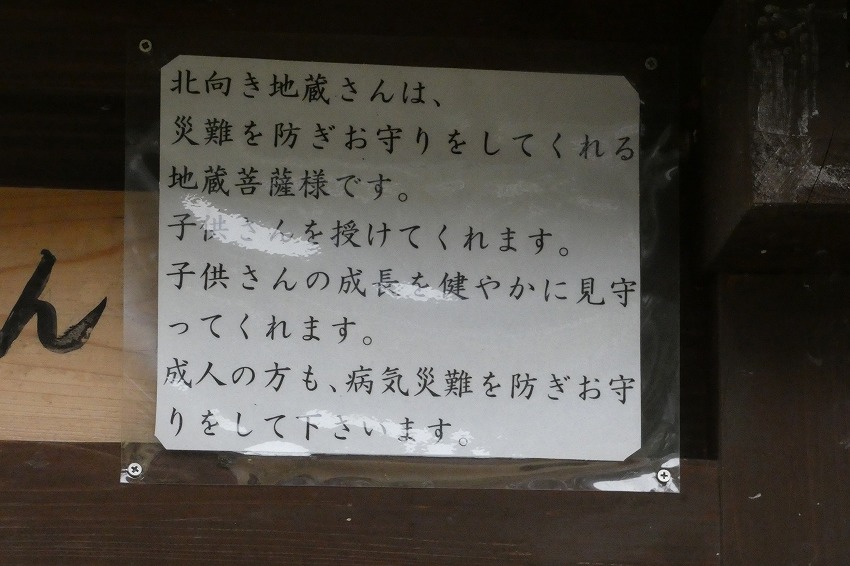 北向き地蔵さんは、
災難を防ぎお守りをしてくれる
地蔵菩薩様です。
子供さんを授けてくれます。
子供さんの成長を健やかに見守
ってくれます。
成人の方も、病気災難を防ぎお守
りをして下さいます。
ん